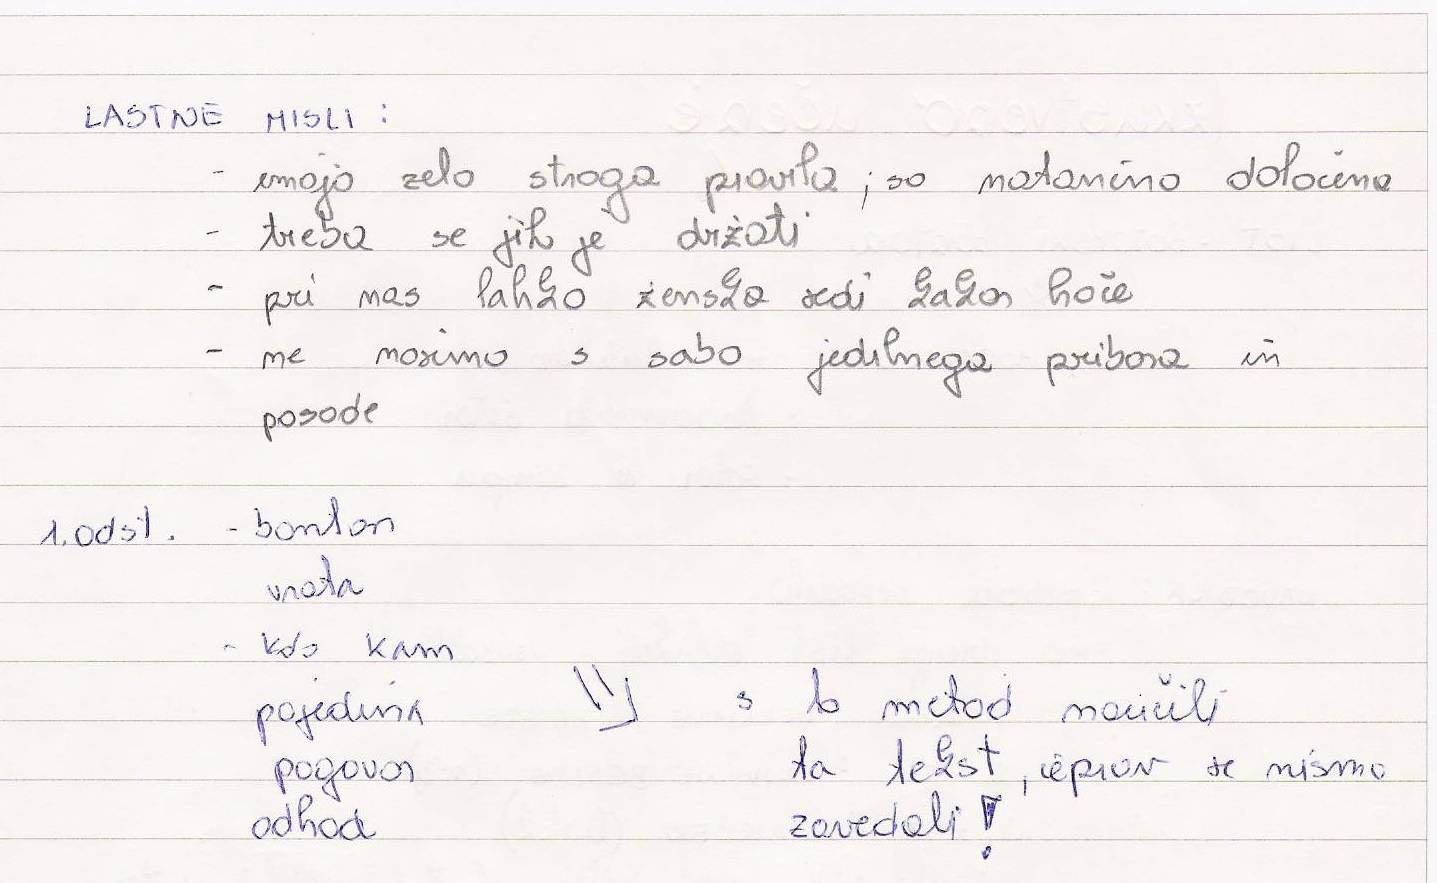 LASTNE MISLI:
- imajo zelo stroga pravila; so natančno določena
- treba se jih je držati
- pri nas lahko ženska sedi kakor hoče
- ne nosimo s sabo jedilnega pribora in
posode
1. odst. - bonton
vrata
- kdo kam
pojedina
pogovor
odhod
s to metod naučili
ta tekst, čeprav se nismo
zavedali!